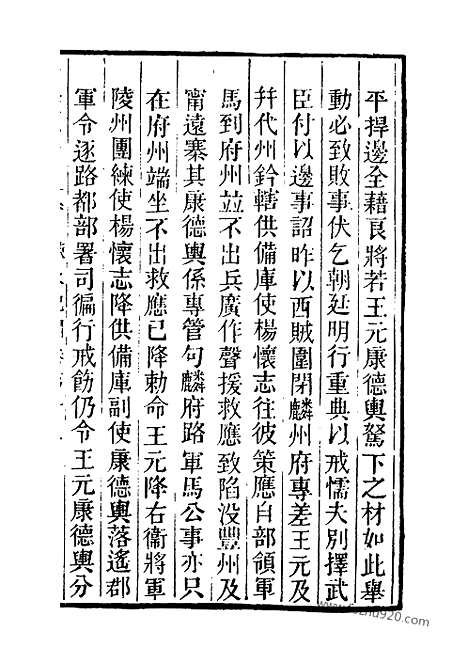 平捍邊全藉良將若王元康德輿駑下之材如此舉
動必致敗事伏乞朝延明行重典以戒懦夫別擇武
臣付以邊事詔昨以西賊圍閉麟州府專差王元及
幷代州鈐轄供備庫使楊懷志往彼策應自部領軍
馬到府州並不出兵廣作聲援救應致陷没豐州及
甯遠寨其康德輿係專管句麟府路軍馬公事亦只
在府州端坐不出救應已降勅命王元降右衞將軍
陵州團練使楊懷志降供備庫副使康德輿落遙郡
軍令逐路都部署司徧行戒飭仍令王元康德輿分